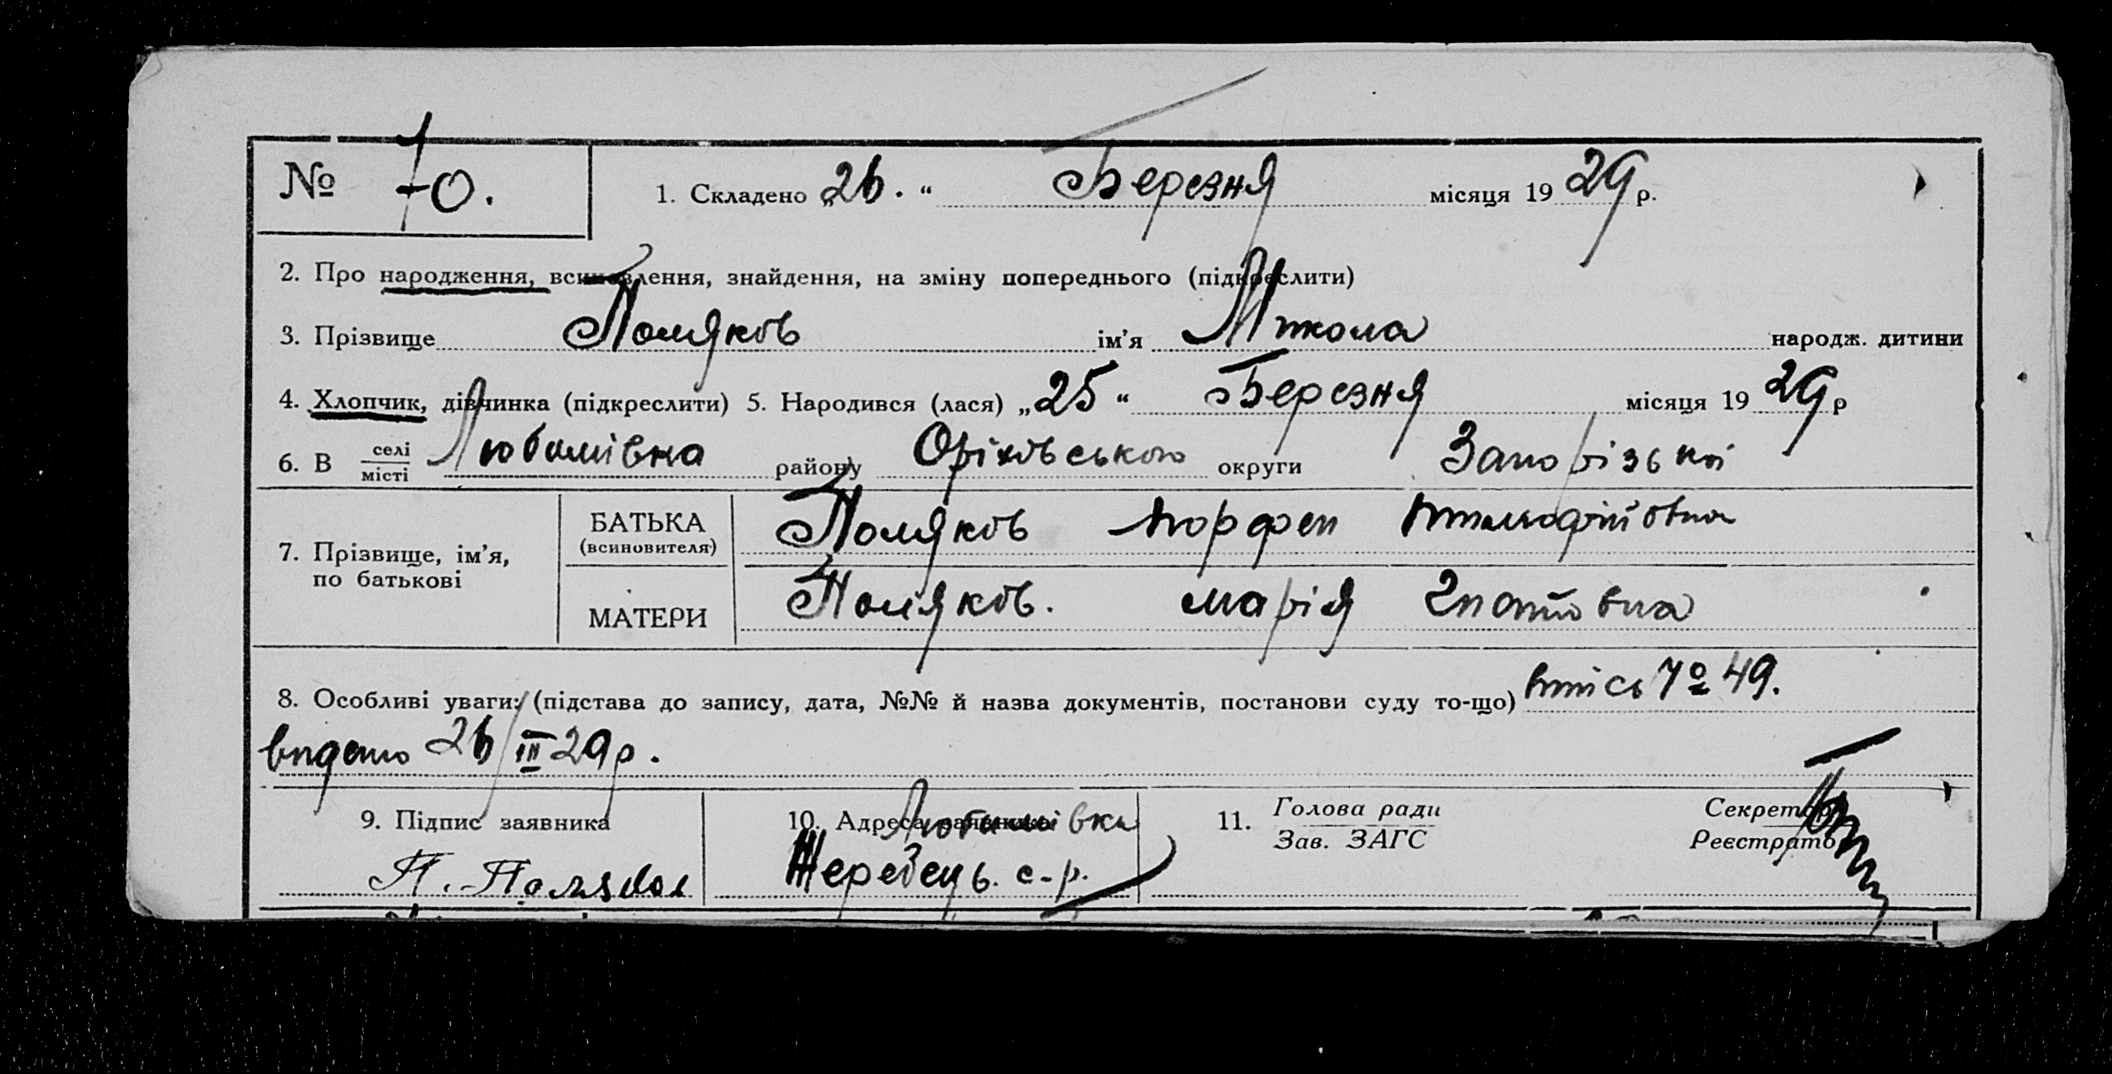 № 70.
1. Складено „26.“ Березня місяця 1929 р.
2. Про народження, всиновлення, знайдення, на зміну попереднього (підкреслити)
3. Прізвище Поляков ім’я Микола народж. дитини
4. Хлопчик, дівчинка (підкреслити) 5. Народився (лася) „25“ Березня місяця 1929 р
6. В селі / місті Любимівка району Оріховського округи Запорізької
7. Прізвище, ім’я, по батькові
БАТЬКА (всиновителя) Поляков Порфен
МАТЕРИ Поляков. Марія
8. Особливі уваги: (підстава до запису, дата, №№ й назва документів, постанови суду то-що) № 49.
видано 26/III 29 р.
9. Підпис заявника 10. Адреса Любимівка 11. Голова ради Секретар
Зав. ЗАГС Реєстратор
П. Поляков Жеребець. с-р.